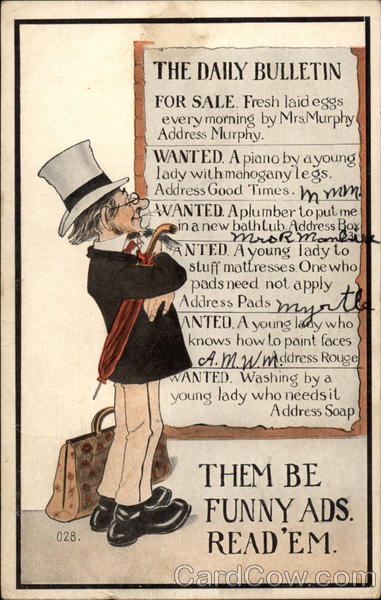 THE DAILY BULLETIN
FOR SALE. Fresh laid eggs
every morning by Mrs. Murphy
Address Murphy.
WANTED. A piano by a young
lady with mahogany legs.
Address Good Times. M MM.
WANTED. A plumber to put me
in a new bath tub. Address Box
Mrs R 23
ANTED. A young lady to
stuff mattresses. One who
pads need not apply
Address Pads Myrtle
ANTED. A young lady who
knows how to paint faces
A. M. W M. Address Rouge
WANTED. Washing by a
young lady who needs it
Address Soap
THEM BE
FUNNY ADS.
READ 'EM.
028.
CardCow.com